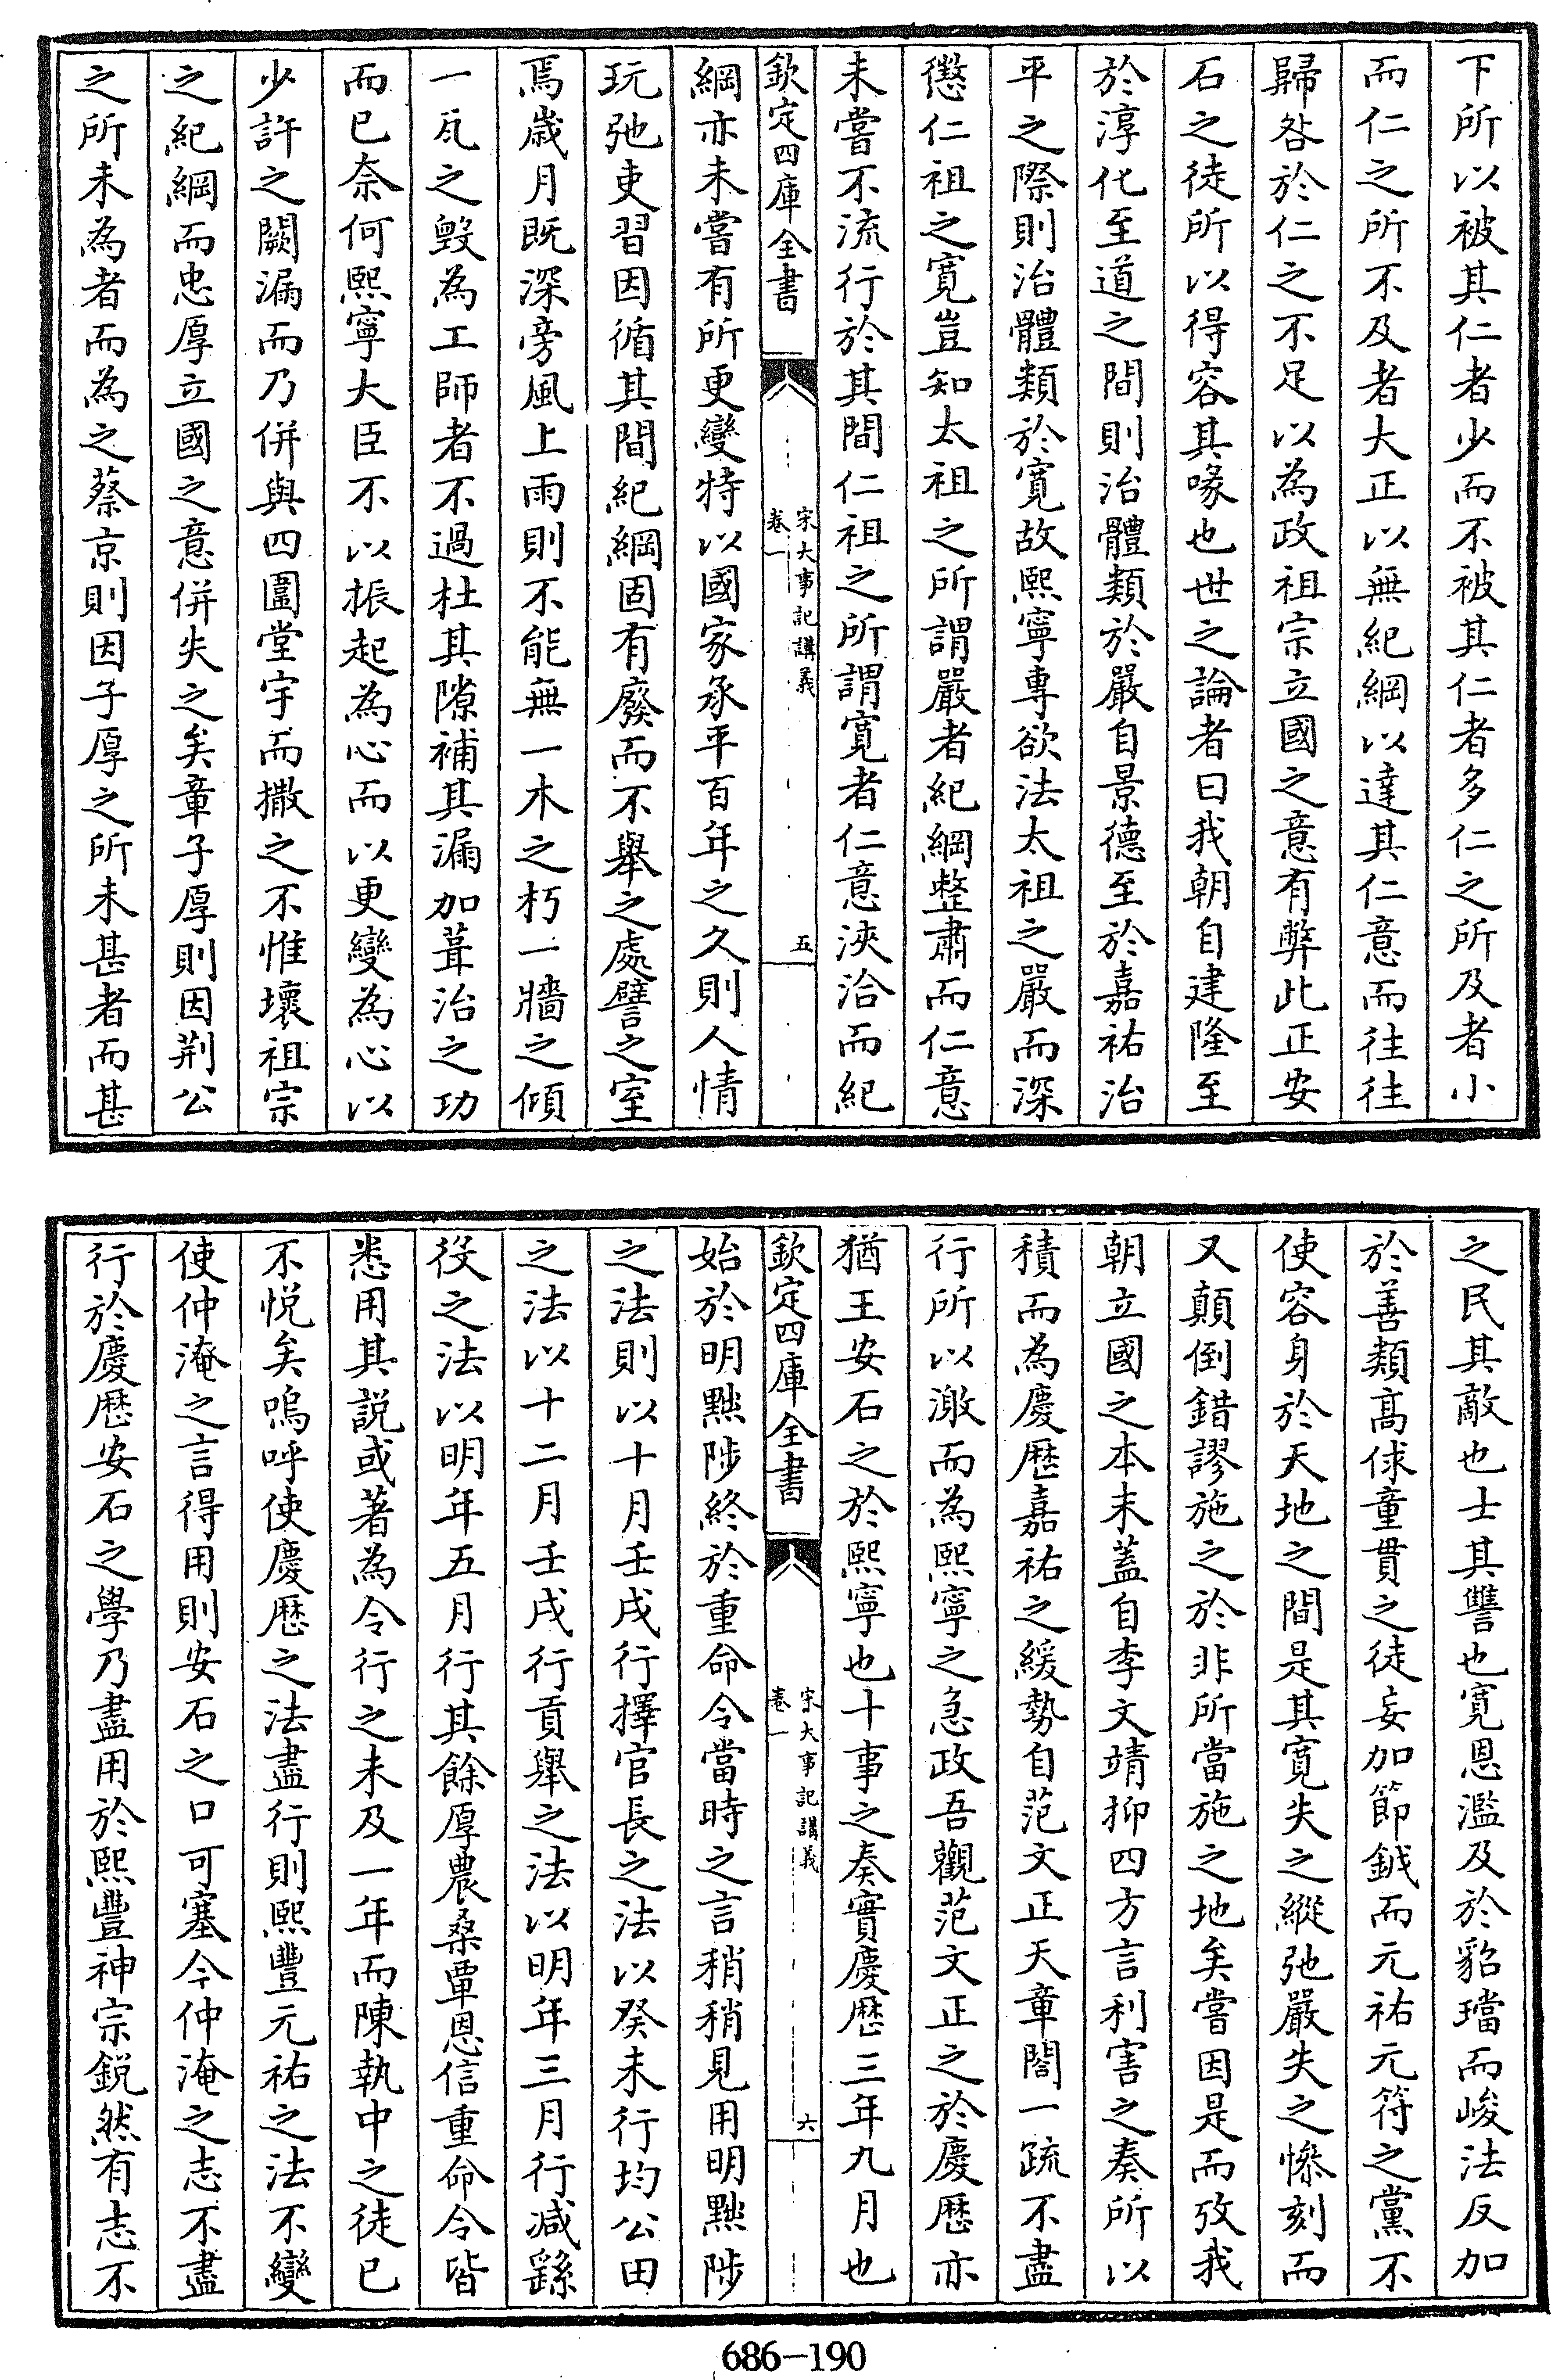 下所以被其仁者少而不被其仁者多仁之所及者小
而仁之所不及者大正以無紀綱以達其仁意而往往
歸咎於仁之不足以為政祖宗立國之意有弊此正安
石之徒所以得容其喙也世之論者曰我朝自建隆至
於淳化至道之間則治體類於嚴自景德至於嘉祐治
平之際則治體類於寛故熙寧專欲法太祖之嚴而深
懲仁祖之寛豈知太祖之所謂嚴者紀綱整肅而仁意
未嘗不流行於其間仁祖之所謂寛者仁意浹洽而紀
欽定四庫全書
宋大事記講義
卷一
五
綱亦未嘗有所更變特以國家承平百年之久則人情
玩弛吏習因循其間紀綱固有廢而不舉之處譬之室
焉歲月既深旁風上雨則不能無一木之朽一牆之傾
一瓦之毀為工師者不過杜其隙補其漏加葺治之功
而已奈何熙寧大臣不以振起為心而以更變為心以
少許之闕漏而乃併與四圍堂宇而撤之不惟壞祖宗
之紀綱而忠厚立國之意併失之矣章子厚則因荆公
之所未為者而為之蔡京則因子厚之所未甚者而甚
之民其敵也士其讐也寛恩濫及於貂璫而峻法反加
於善類髙俅童貫之徒妄加節鉞而元祐元符之黨不
使容身於天地之間是其寛失之縱弛嚴失之慘刻而
又顛倒錯謬施之於非所當施之地矣嘗因是而攷我
朝立國之本末蓋自李文靖抑四方言利害之奏所以
積而為慶歴嘉祐之緩勢自范文正天章閣一疏不盡
行所以激而為熙寧之急政吾觀范文正之於慶歴亦
猶王安石之於熙寧也十事之奏實慶歴三年九月也
欽定四庫全書
宋大事記講義
卷一
六
始於明黜陟終於重命令當時之言稍稍見用明黜陟
之法則以十月壬戌行擇官長之法以癸未行均公田
之法以十二月壬戌行貢舉之法以明年三月行减繇
役之法以明年五月行其餘厚農桑覃恩信重命令皆
悉用其説或著為令行之未及一年而陳執中之徒已
不悦矣嗚呼使慶歴之法盡行則熙豐元祐之法不變
使仲淹之言得用則安石之口可塞今仲淹之志不盡
行於慶歴安石之學乃盡用於熙豐神宗鋭然有志不
686-190